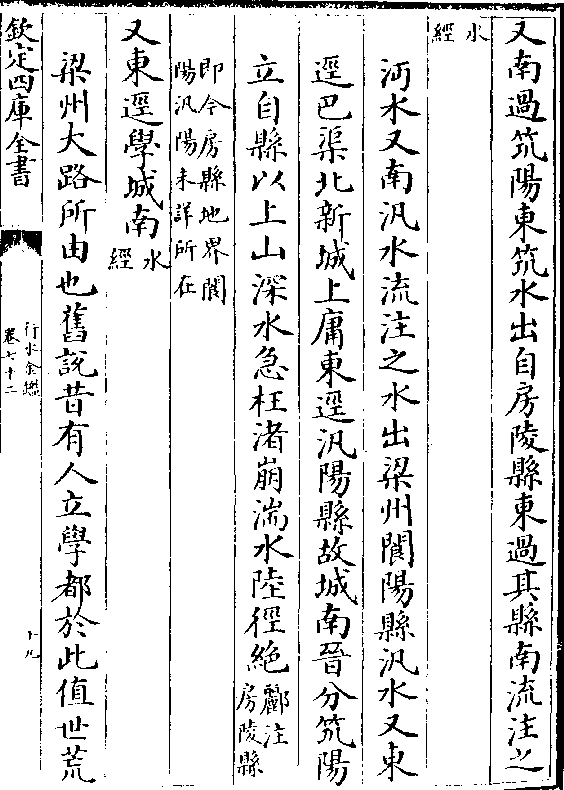 又南過筑陽東筑水出自房陵縣東過其縣南流注之
水經
沔水又南汎水流注之水出梁州閬陽縣汎水又東
逕巴渠北新城上庸東逕汎陽縣故城南晉分筑陽
立自縣以上山深水急枉渚崩湍水陸徑絶酈注
房陵縣
即今房縣地界閬
陽汎陽未詳所在
又東逕學城南水經
梁州大路所由也舊說昔有人立學都於此值世荒
欽定四庫全書
行水金鑑
卷七十二
十九